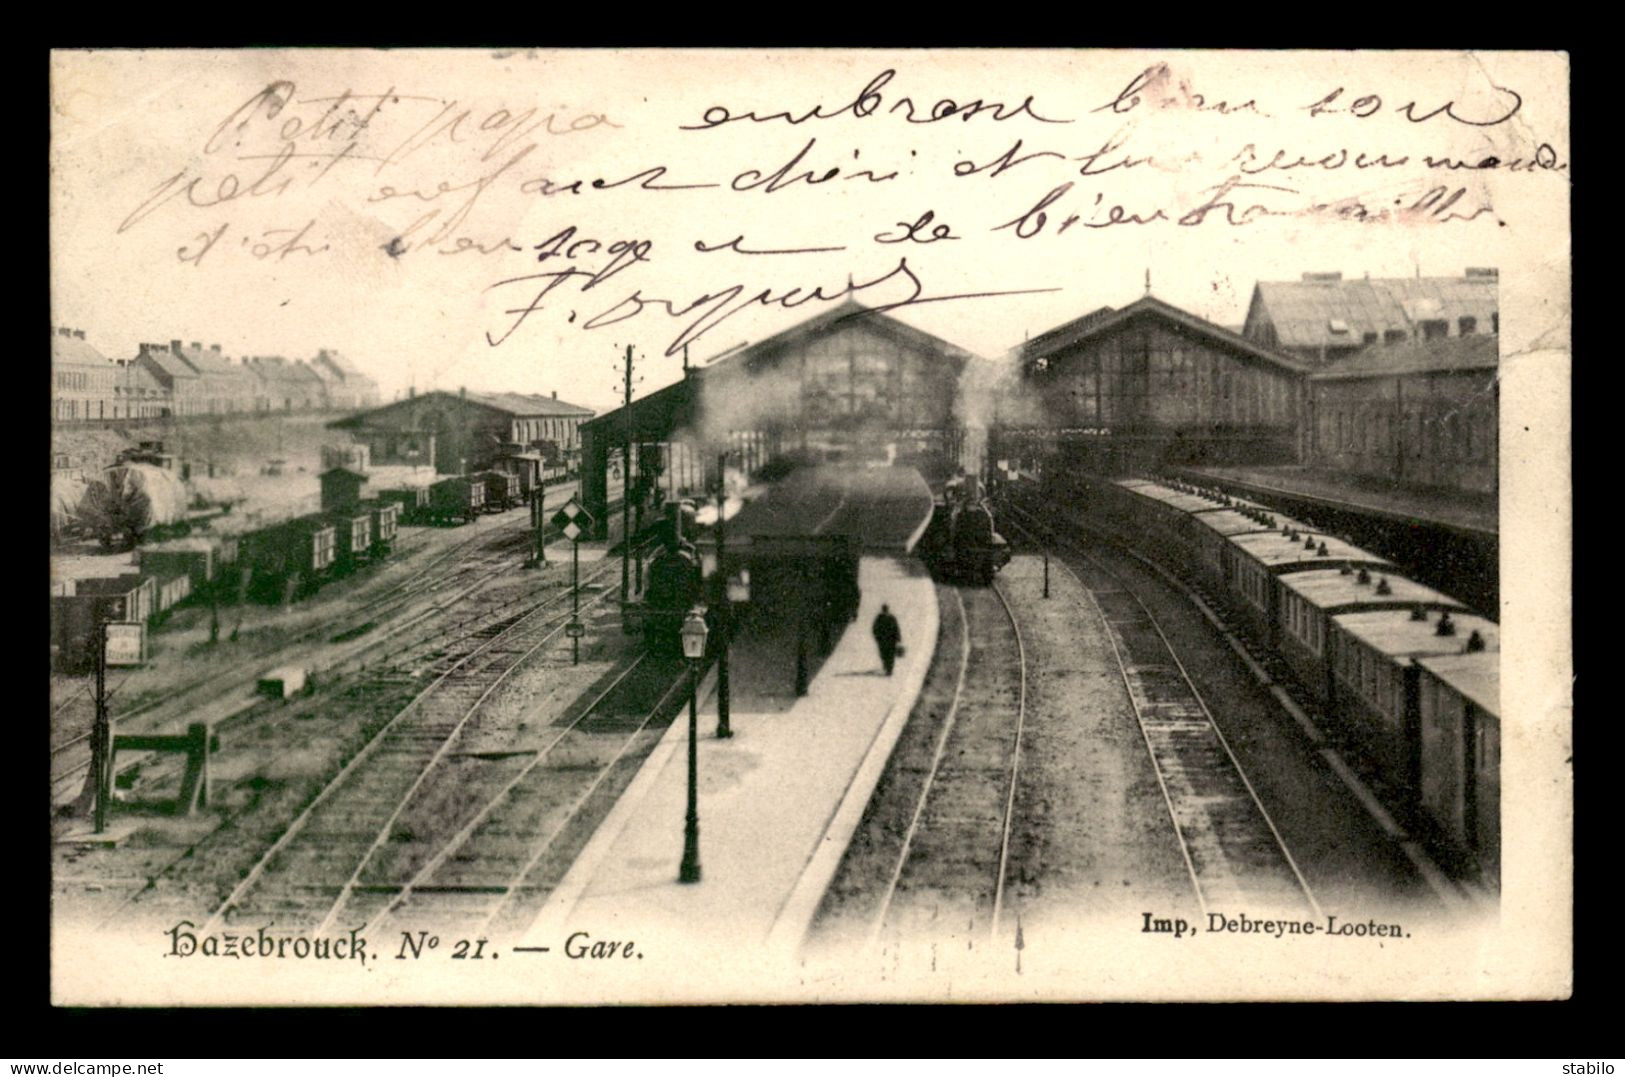 Petit papa embrasse bien son
petit enfant chéri et lui recommande
d'être bien sage et de bien travailler.
Hazebrouck. Nº 21. — Gare.
Imp, Debreyne-Looten.
www.delcampe.net
stabilo